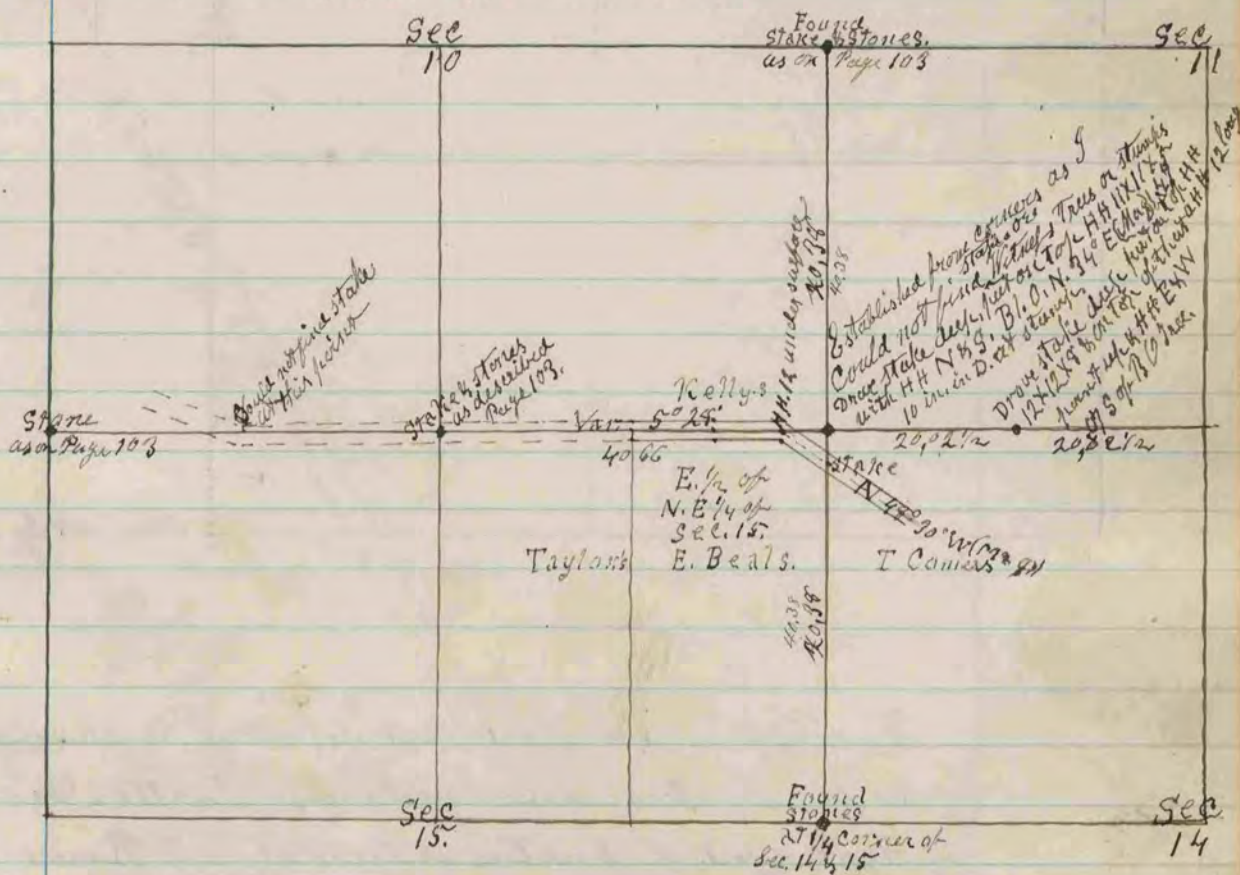 Sec
10
Found
Stake & Stones.
as on Page 103
Sec
11
Could not find stake
at this point
Stake & Stones
as described
Page 103.
H.H. 12 under surface
40,38
40.38
Established from Corners as I
Could not find Witness Trees or stumps
Drove stake deep, put on top HH 11X11X
with HH N & S, Bl. O. N. 34° E (Mag)
10 in. in D. at stump
Drove stake deep put on top of HH
12X12X8
HH E & W
S of B O Tree.
12 long
Stone
as on Page 103
Kelly.s
Var. 5° 28'
40 66
20,02 1/2
20,02 1/2
stake
N 47° 30" W (Mag
E. 1/2 of
N. E 1/4 of
Sec. 15.
Taylor's
E. Beals.
T Comers
40.38
40,38
Sec
15.
Found
Stones
at 1/4 Corner of
Sec. 14 & 15
Sec
14